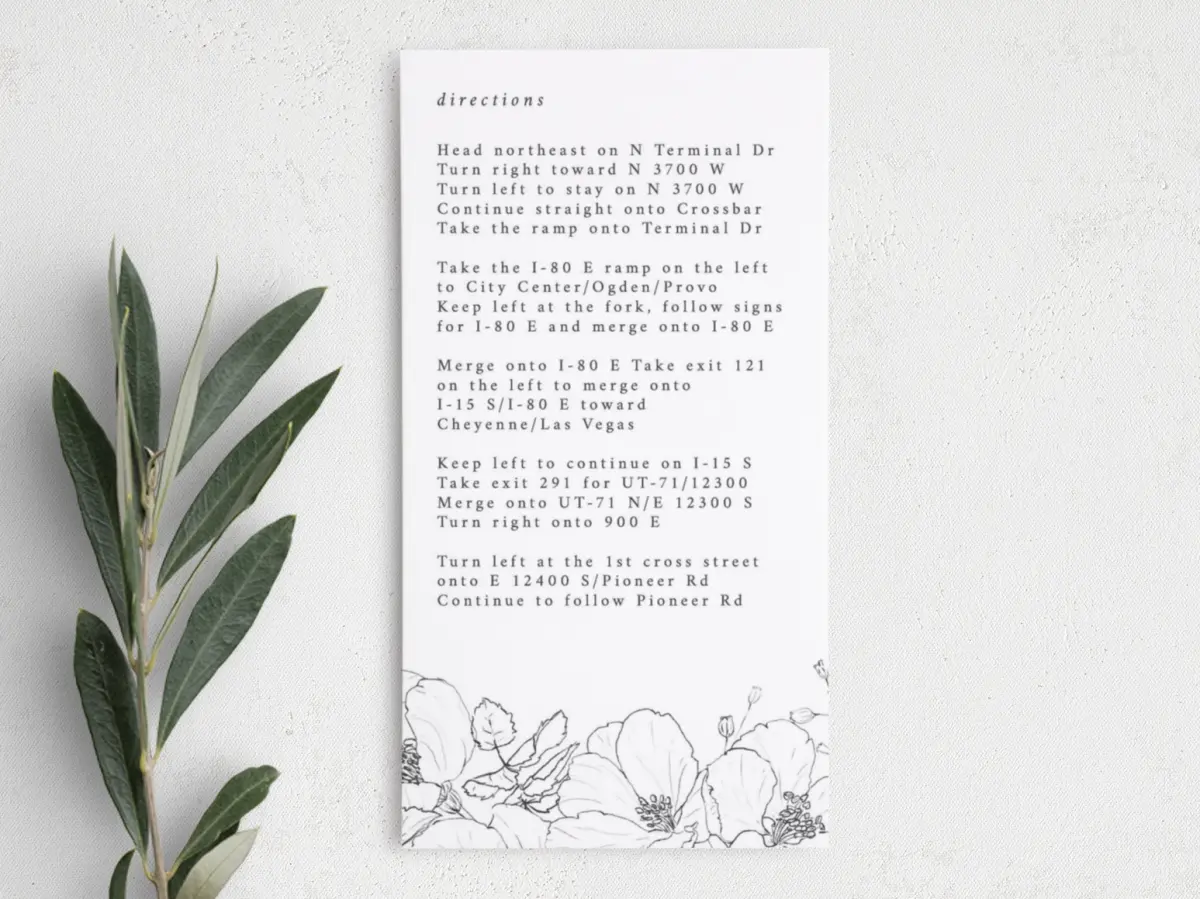 directions
Head northeast on N Terminal Dr
Turn right toward N 3700 W
Turn left to stay on N 3700 W
Continue straight onto Crossbar
Take the ramp onto Terminal Dr
Take the I-80 E ramp on the left
to City Center/Ogden/Provo
Keep left at the fork, follow signs
for I-80 E and merge onto I-80 E
Merge onto I-80 E Take exit 121
on the left to merge onto
I-15 S/I-80 E toward
Cheyenne/Las Vegas
Keep left to continue on I-15 S
Take exit 291 for UT-71/12300
Merge onto UT-71 N/E 12300 S
Turn right onto 900 E
Turn left at the 1st cross street
onto E 12400 S/Pioneer Rd
Continue to follow Pioneer Rd